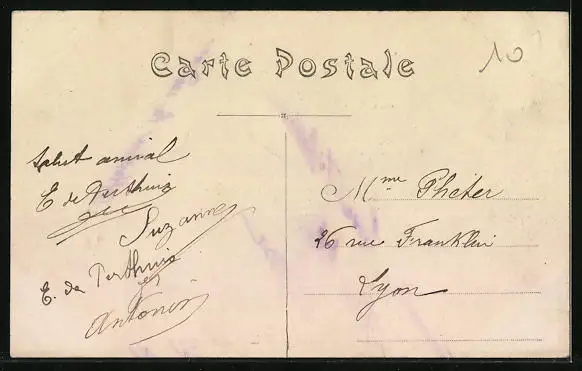 Carte Postale
10
Salut amical
E de Perthuis
Suzanne
E. de Perthuis
et
Antonin
Mme Pheter
26 rue Franklin
Lyon